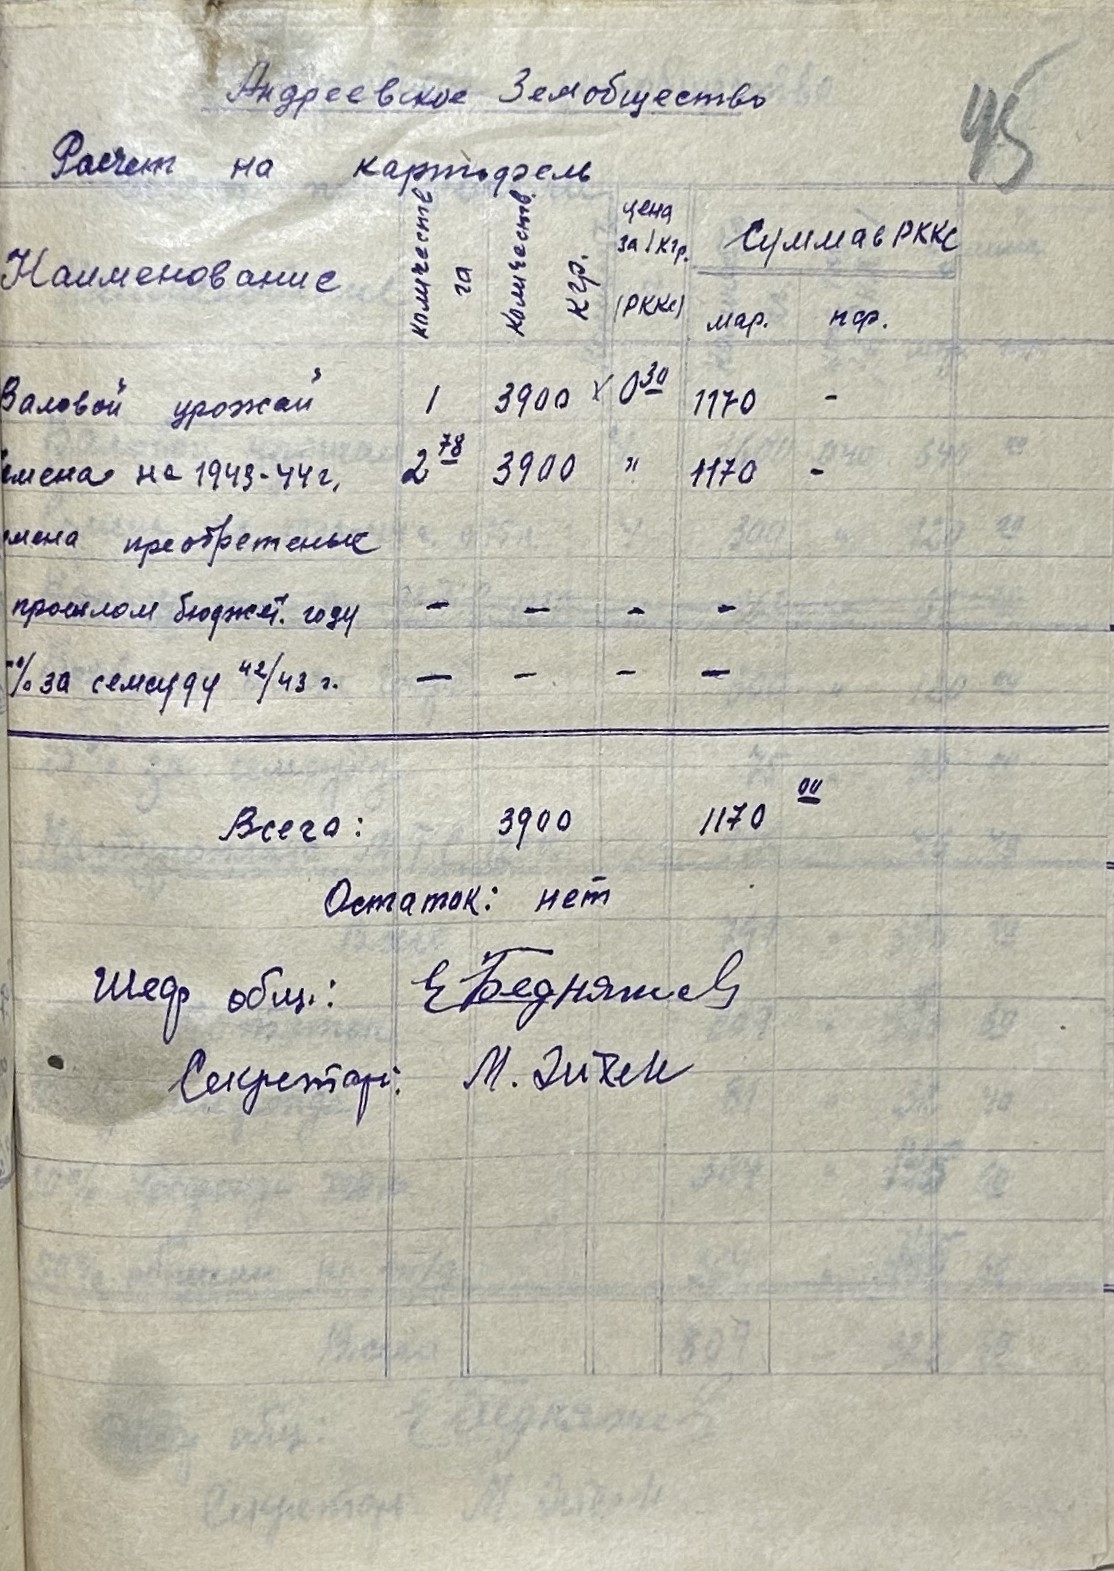 45
Андреевское Земобщество
Расчет на картофель
Наименование
количеств га
количеств. кгр.
цена за 1 кгр. (РККс)
Сумма в РККс
мар. пф.
Валовой урожай 1 3900 х 0 30 1170 -
емена на 1943-44 г. 2 78 3900 " 1170 -
мена преобретеные
прошлом бюджет. году - - - -
% за семсуду 42/43 г. - - - -
Всего: 3900 1170 00
Остаток: нет
Шеф общ.:
Секретарь: М.